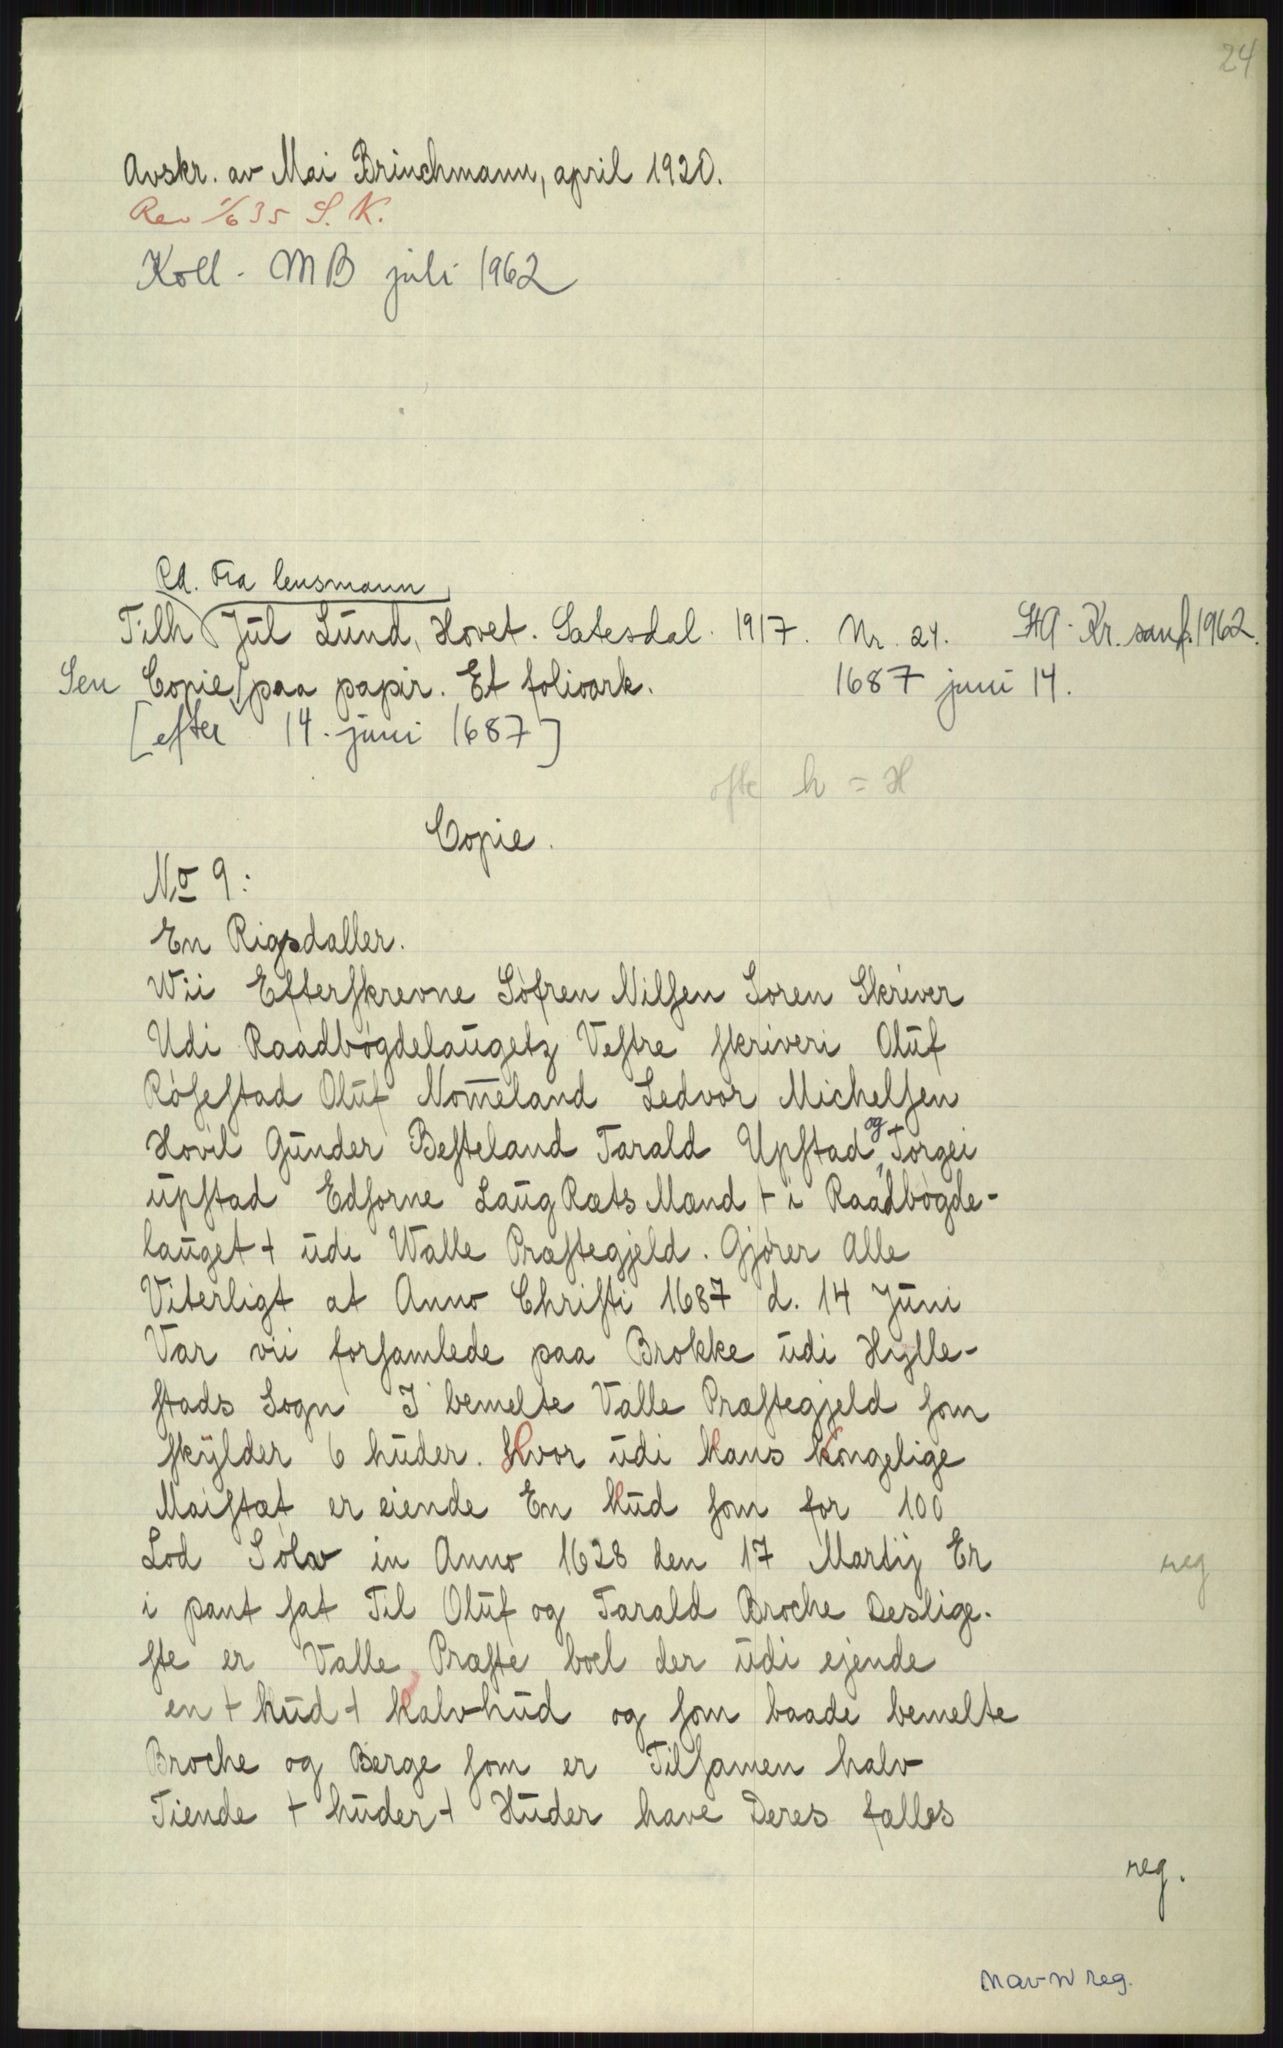 24
Avskr. av Mai Brinchmann, april 1920.
Rev 1/6 35 S. K.
Koll. MB juli 1962
Rd. Fra lensmann
Tilh Jul Lund, Hovet. Sætesdal. 1917. Nr. 24. SA. Kr. sand. 1962.
Sen Copie paa papir. Et folioark. 1687 juni 14.
[efter 14. juni 1687]
ofte h = H
Copie.
No 9:
En Rigsdaller.
Wii Efterſkrevne Söfren Nilſen Soren Skriver
Udi Raadbøgdelaugetz Veſtre ſkriveri Oluf
Röſeſtad Oluf Nom̄eland Ledvor Michelſen
Hovil Gunder Beſteland Tarald Upſtad og Torgei
upſtad Edſorne Laug Ræts Mænd + i Raadbögde-
lauget + udi Walle Præſtegjeld. Gjörer Alle
Viterligt at Anno Chriſti 1687 d. 14 Juni
Var vii forſamlede paa Brokke udi Hylle-
ſtads Sogn I bemelte Valle Præſtegjeld ſom
ſkylder 6 huder. Hvor udi Hans Kongelige
Maiſtæt er eiende En Hud ſom for 100
Lod Sölv in Anno 1628 den 17 Martij Er
i pant ſat Til Oluf og Tarald Broche Deslige-
ſte er Valle Præſte boel der udi ejende
en + hud + halvhud og ſom baade bemelte
Broche og Berge ſom er Tilſamen halv
Tiende + huder + Huder have Deres fælles
reg
reg.
navn reg.